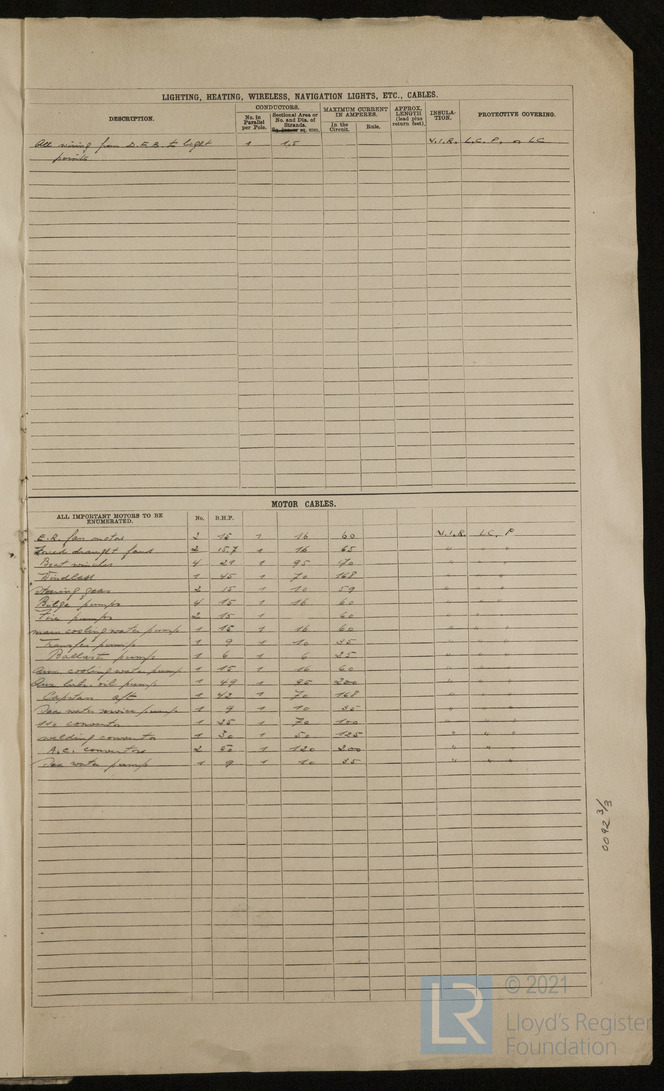 LIGHTING, HEATING, WIRELESS, NAVIGATION LIGHTS, ETC., CABLES.
DESCRIPTION. CONDUCTORS. MAXIMUM CURRENT IN AMPERES. APPROX. LENGTH (lead plus return feet). INSULA-TION. PROTECTIVE COVERING.
No. in Parallel per Pole. Sectional Area or No. and Dia. of Strands. sq. mm. In the Circuit. Rule.
All wiring from D.F.B. to light 1 1,5 V.I.R. L.C. P. or LC
points
MOTOR CABLES.
ALL IMPORTANT MOTORS TO BE ENUMERATED. No. B.H.P.
E.R. fan motor 2 15 1 16 60 V.I.R. LC, P
Forced draught fans 2 15,7 1 16 65 " " "
Boat winches 4 21 1 95 170 " " "
Windlass 1 45 1 70 168 " " "
Steering gear 2 15 1 10 59 " " "
Bilge pumps 4 15 1 16 60 " " "
Fire pumps 2 15 1 60 " " "
main cooling water pump 1 15 1 16 60 " " "
Transfer pump 1 9 1 10 35 " " "
Ballast pump 1 6 1 6 25 " " "
cooling water pump 1 15 1 16 60 " " "
lub. oil pump 1 49 1 95 200 " " "
Capstan aft 1 42 1 70 168 " " "
Sea water service pump 1 9 1 10 35 " " "
convertor 1 25 1 70 100 " " "
welding convertor 1 30 1 50 125 " " "
A.C. convertors 2 50 1 120 200 " " "
Sea water pump 1 9 1 10 35 " " "
0092 3/3
© 2021
LR
Lloyd's Register
Foundation